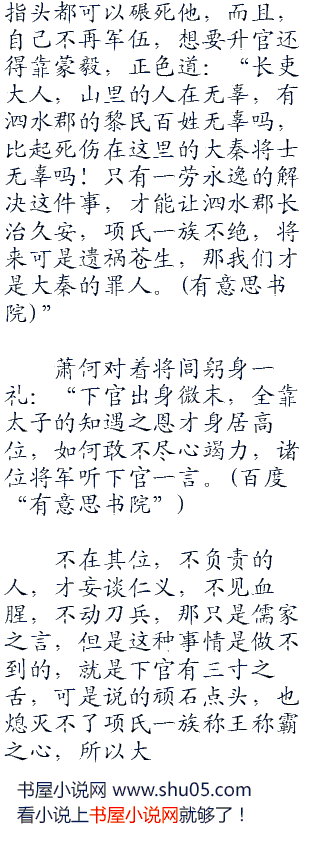 指头都可以碾死他，而且，
自己不再军伍，想要升官还
得靠蒙毅，正色道：“长吏
大人，山里的人在无辜，有
泗水郡的黎民百姓无辜吗，
比起死伤在这里的大秦将士
无辜吗！只有一劳永逸的解
决这件事，才能让泗水郡长
治久安，项氏一族不绝，将
来可是遗祸苍生，那我们才
是大秦的罪人。(有意思书
院)”
萧何对着将闾躬身一
礼：“下官出身微末，全靠
太子的知遇之恩才身居高
位，如何敢不尽心竭力，诸
位将军听下官一言。(百度
“有意思书院”)
不在其位，不负责的
人，才妄谈仁义，不见血
腥，不动刀兵，那只是儒家
之言，但是这种事情是做不
到的，就是下官有三寸之
舌，可是说的顽石点头，也
熄灭不了项氏一族称王称霸
之心，所以大
书屋小说网 www.shu05.com
看小说上书屋小说网就够了！